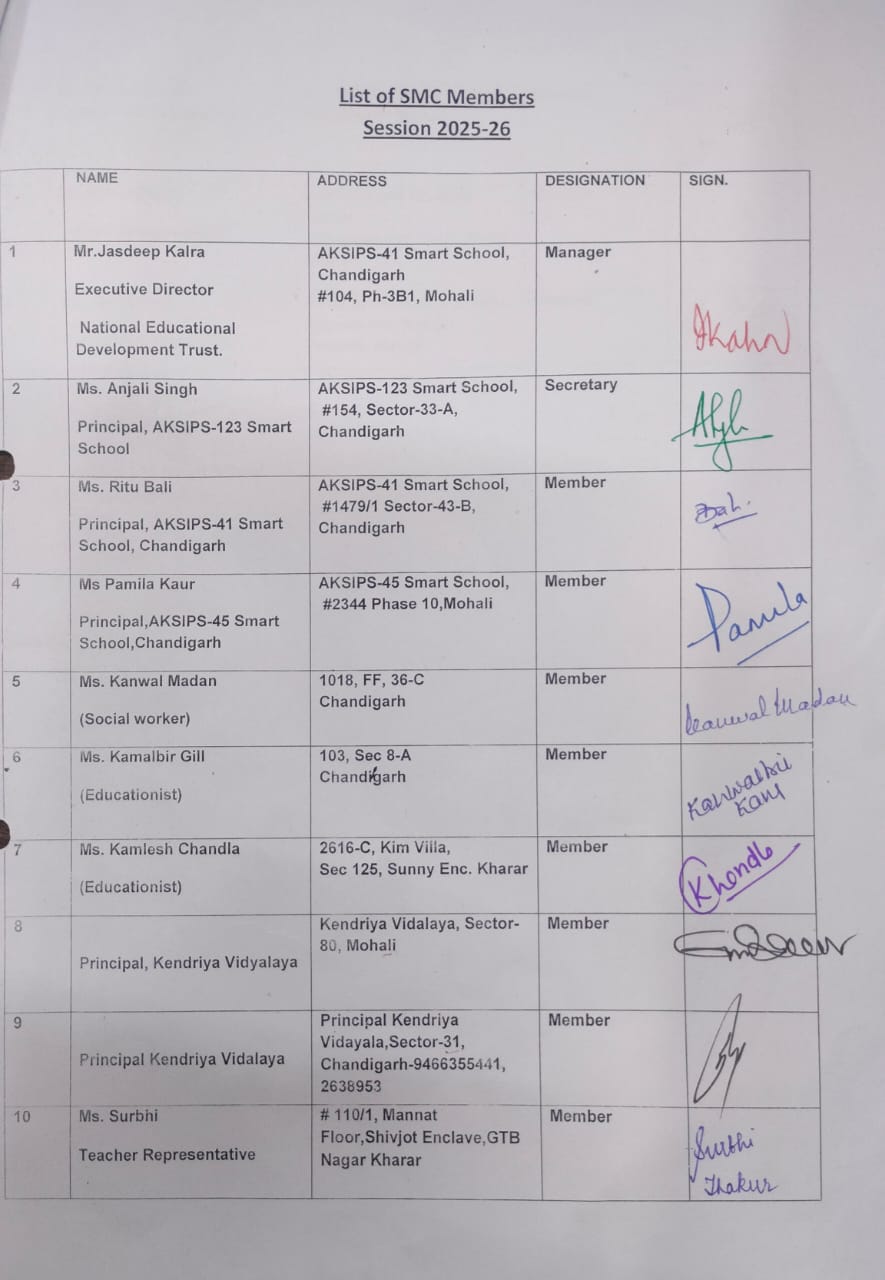 List of SMC Members
Session 2025-26
NAME ADDRESS DESIGNATION SIGN.
1 Mr.Jasdeep Kalra AKSIPS-41 Smart School, Manager
Chandigarh
Executive Director #104, Ph-3B1, Mohali
National Educational
Development Trust.
2 Ms. Anjali Singh AKSIPS-123 Smart School, Secretary
#154, Sector-33-A,
Principal, AKSIPS-123 Smart Chandigarh
School
3 Ms. Ritu Bali AKSIPS-41 Smart School, Member
#1479/1 Sector-43-B,
Principal, AKSIPS-41 Smart Chandigarh
School, Chandigarh
4 Ms Pamila Kaur AKSIPS-45 Smart School, Member
#2344 Phase 10,Mohali
Principal,AKSIPS-45 Smart Pamila
School,Chandigarh
5 Ms. Kanwal Madan 1018, FF, 36-C Member
Chandigarh
(Social worker) Kanwal Madan
6 Ms. Kamalbir Gill 103, Sec 8-A Member
Chandigarh
(Educationist)
7 Ms. Kamlesh Chandla 2616-C, Kim Villa, Member
Sec 125, Sunny Enc. Kharar
(Educationist)
8 Kendriya Vidalaya, Sector- Member
80, Mohali
Principal, Kendriya Vidyalaya
9 Principal Kendriya Member
Vidayala,Sector-31,
Principal Kendriya Vidalaya Chandigarh-9466355441,
2638953
10 Ms. Surbhi # 110/1, Mannat Member
Floor,Shivjot Enclave,GTB Surbhi
Teacher Representative Nagar Kharar
Thakur